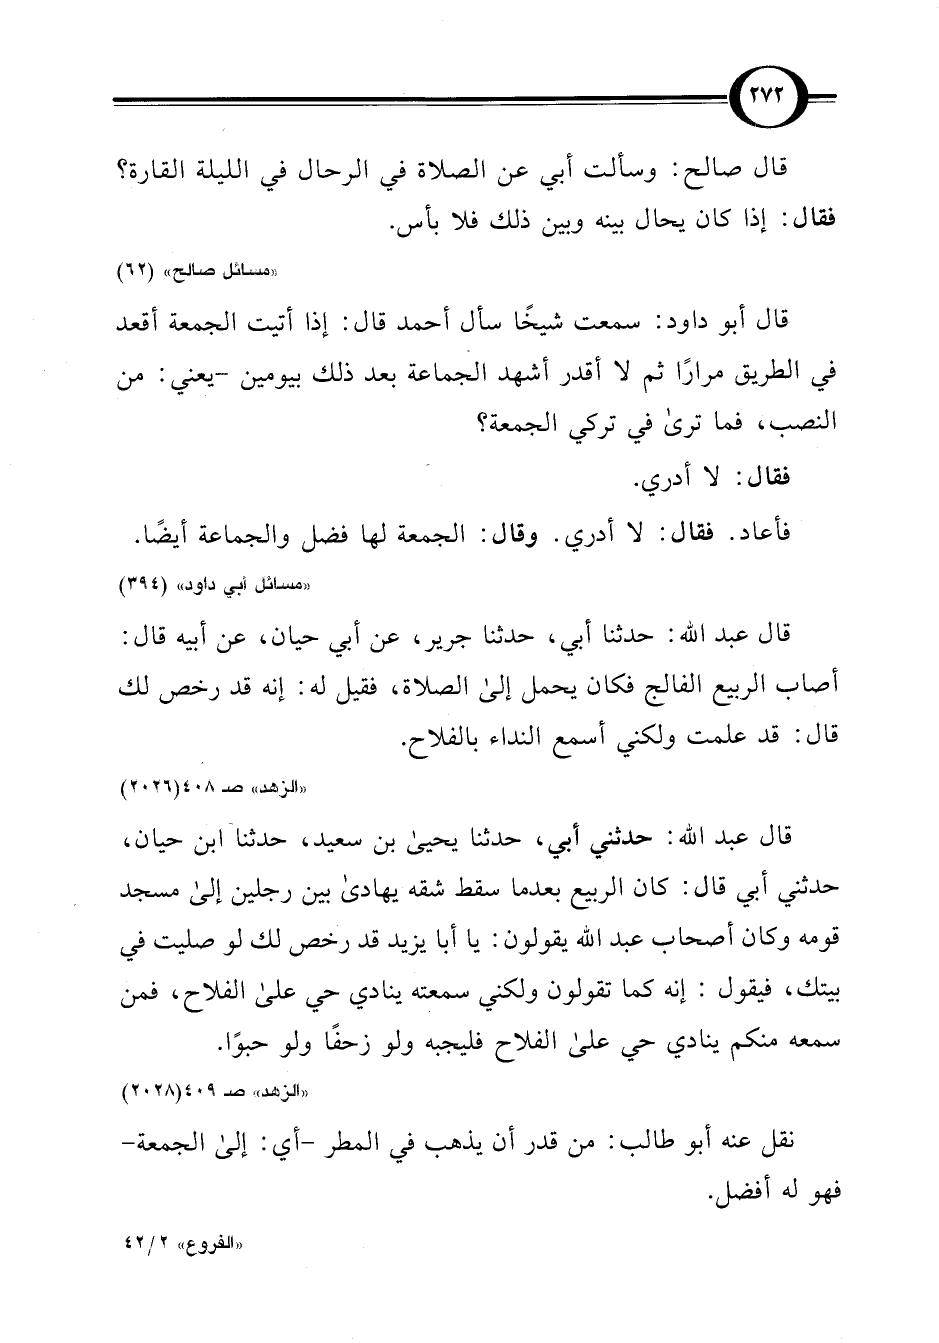 ٢٧٢
قال صالح: وسألت أبي عن الصلاة في الرحال في الليلة القارة؟
فقال: إذا كان يحال بينه وبين ذلك فلا بأس.
«مسائل صالح» (٦٢)
قال أبو داود: سمعت شيخًا سأل أحمد قال: إذا أتيت الجمعة أقعد
في الطريق مرارًا ثم لا أقدر أشهد الجماعة بعد ذلك بيومين -يعني: من
النصب، فما ترىٰ في تركي الجمعة؟
فقال: لا أدري.
فأعاد. فقال: لا أدري. وقال: الجمعة لها فضل والجماعة أيضًا.
«مسائل أبي داود» (٣٩٤)
قال عبد الله: حدثنا أبي، حدثنا جرير، عن أبي حيان، عن أبيه قال:
أصاب الربيع الفالج فكان يحمل إلىٰ الصلاة، فقيل له: إنه قد رخص لك
قال: قد علمت ولكني أسمع النداء بالفلاح.
«الزهد» صـ ٤٠٨(٢٠٢٦)
قال عبد الله: حدثني أبي، حدثنا يحيىٰ بن سعيد، حدثنا ابن حيان،
حدثني أبي قال: كان الربيع بعدما سقط شقه يهادىٰ بين رجلين إلىٰ مسجد
قومه وكان أصحاب عبد الله يقولون: يا أبا يزيد قد رخص لك لو صليت في
بيتك، فيقول : إنه كما تقولون ولكني سمعته ينادي حي علىٰ الفلاح، فمن
سمعه منكم ينادي حي علىٰ الفلاح فليجبه ولو زحفًا ولو حبوًا.
«الزهد» صـ ٤٠٩(٢٠٢٨)
نقل عنه أبو طالب: من قدر أن يذهب في المطر -أي: إلىٰ الجمعة-
فهو له أفضل.
«الفروع» ٢/ ٤٢